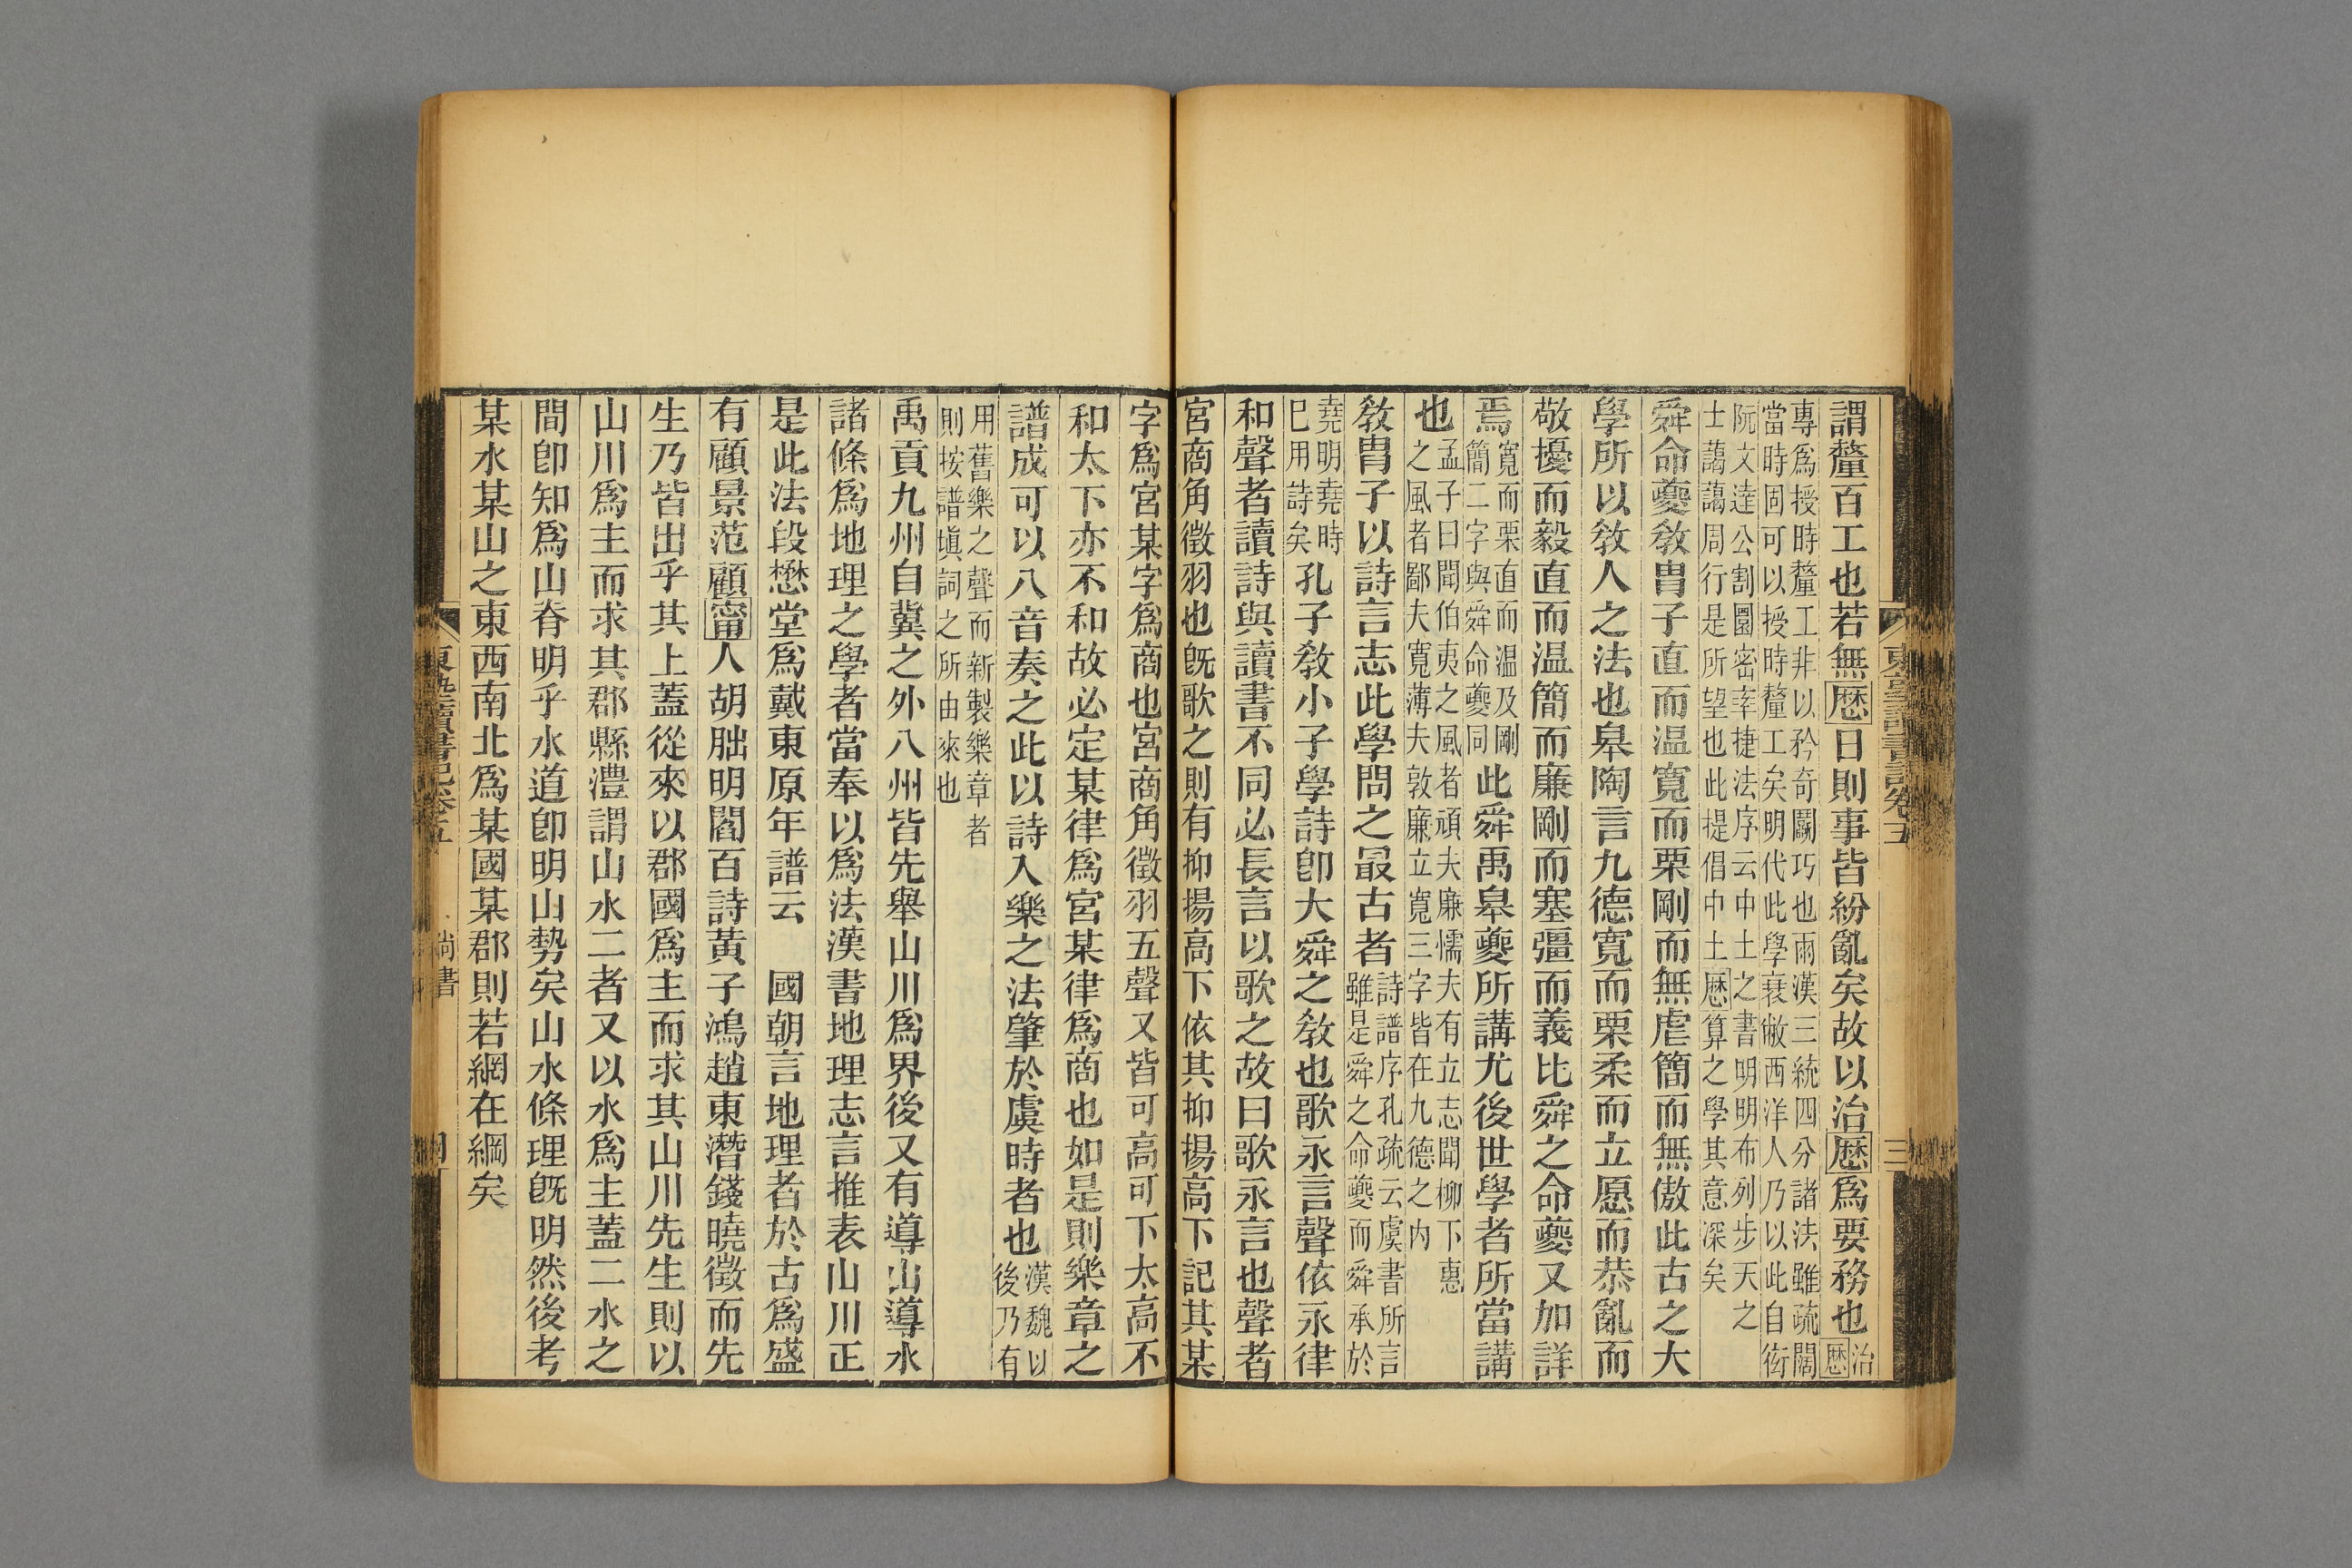 東塾讀書記卷五
三
謂釐百工也若無厯日則事皆紛亂矣故以治厯爲要務也治厯
專爲授時釐工非以矜奇鬭巧也兩漢三統四分諸法雖疏闊
當時固可以授時釐工矣明代此學衰敝西洋人乃以此自衒
阮文達公割圜密率捷法序云中土之書明明布列步天之
士藹藹周行是所望也此提倡中土厯算之學其意深矣
舜命夔敎胄子直而温寛而栗剛而無虐簡而無傲此古之大
學所以敎人之法也臯陶言九德寛而栗柔而立愿而恭亂而
敬擾而毅直而温簡而廉剛而塞彊而義比舜之命夔又加詳
焉寛而栗直而温及剛簡二字與舜命夔同此舜禹臯夔所講尤後世學者所當講
也孟子曰聞伯夷之風者頑夫廉懦夫有立志聞柳下惠之風者鄙夫寛薄夫敦廉立寛三字皆在九德之内
敎胄子以詩言志此學問之最古者詩譜序孔疏云虞書所言雖是舜之命夔而舜承於
堯明堯時已用詩矣孔子敎小子學詩卽大舜之敎也歌永言聲依永律
和聲者讀詩與讀書不同必長言以歌之故曰歌永言也聲者
宮商角徵羽也旣歌之則有抑揚高下依其抑揚高下記其某
字爲宮某字爲商也宮商角徵羽五聲又皆可高可下太高不
和太下亦不和故必定某律爲宮某律爲商也如是則樂章之
譜成可以八音奏之此以詩入樂之法肇於虞時者也漢魏以後乃有
用舊樂之聲而新製樂章者則按譜塡詞之所由來也
禹貢九州自冀之外八州皆先舉山川爲界後又有導山導水
諸條爲地理之學者當奉以爲法漢書地理志言推表山川正
是此法段懋堂爲戴東原年譜云　國朝言地理者於古爲盛
有顧景范顧甯人胡朏明閻百詩黃子鴻趙東潛錢曉徵而先
生乃皆出乎其上蓋從來以郡國爲主而求其山川先生則以
山川爲主而求其郡縣澧謂山水二者又以水爲主蓋二水之
間卽知爲山脊明乎水道卽明山勢矣山水條理旣明然後考
某水某山之東西南北爲某國某郡則若網在綱矣
東塾讀書記卷五
尚書